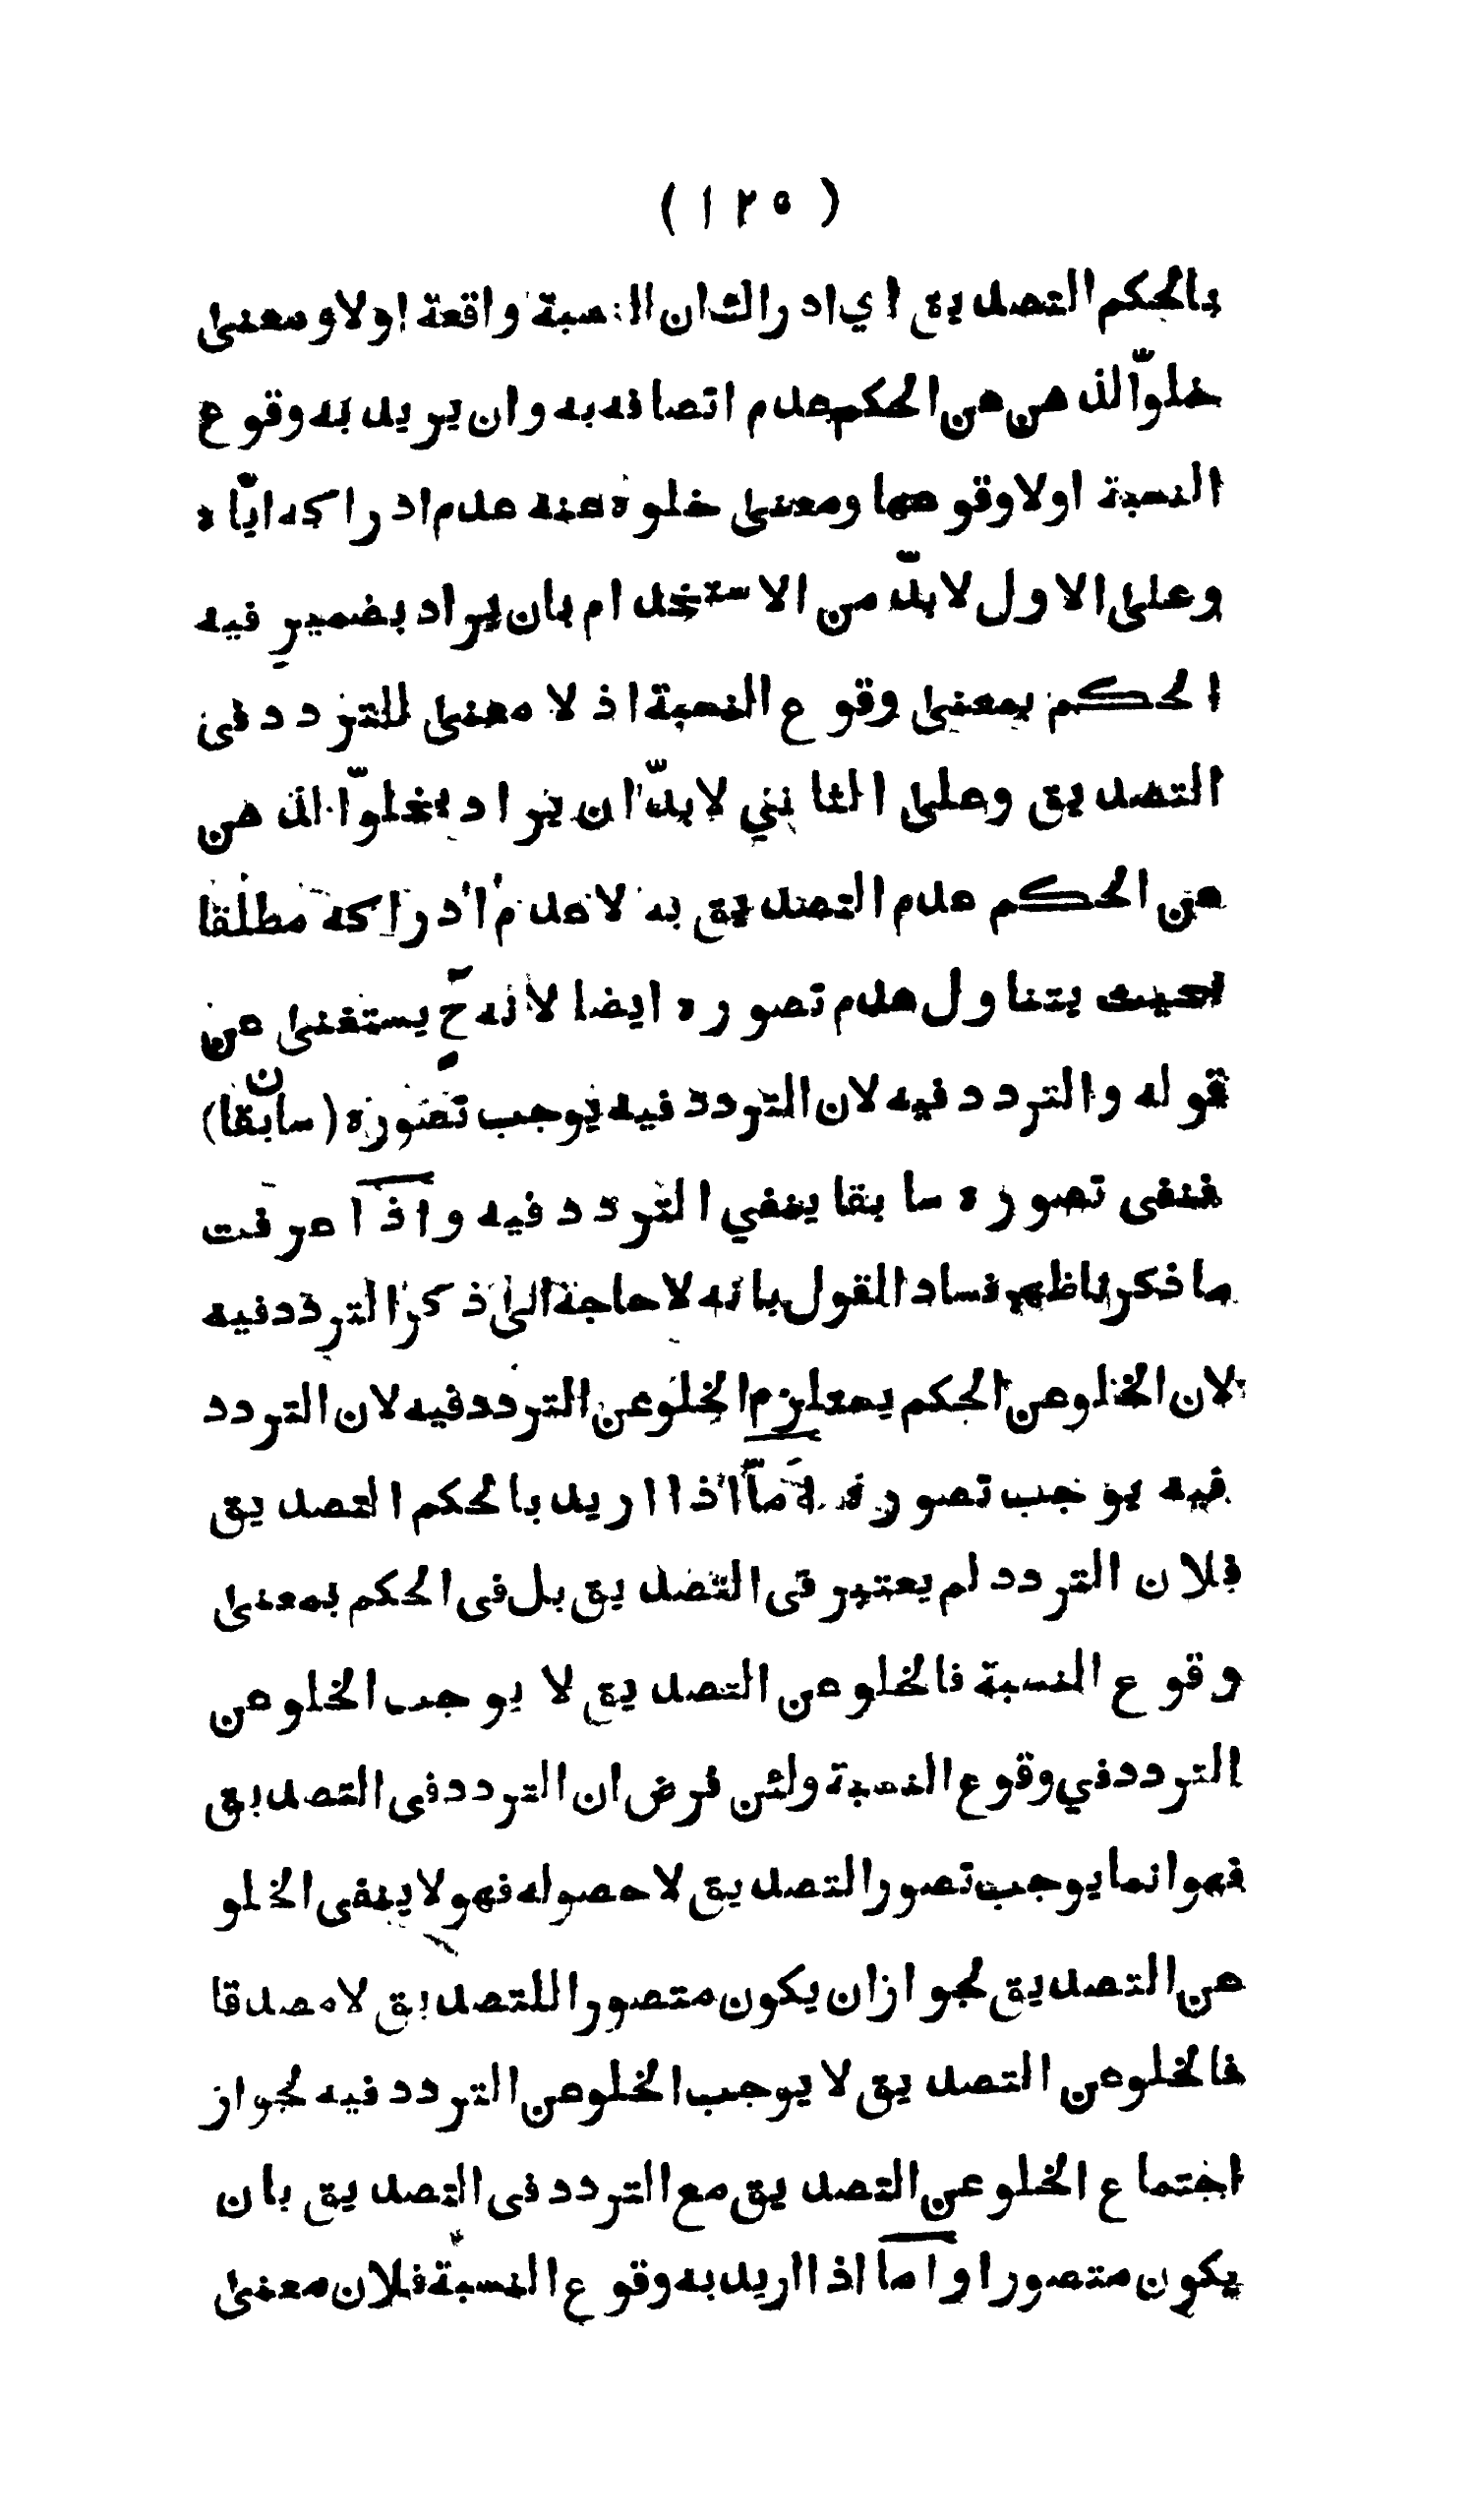 (١٢٥)
بالحكم التصديق اي ادراك ان النسبة واقعة اولا ومعنى
خلوّ الذهن عن الحكم عدم اتصافه به وان يريد به وقوع
النسبة اولا وقوعها ومعنى خلوه عنه عدم ادراكه ايّاه
وعلى الاول لا بدّ من الاستخدام بان يراد بضمير فيه
الحكم بمعنى وقوع النسبة اذ لا معنى للتردد فى
التصديق وعلى الثاني لا بدّ ان يراد بخلوّ الذهن
عن الحكم عدم التصديق به لا عدم ادراكه مطلقا
بحيث يتناول عدم تصوره ايضا لانه حّ يستغنى عن
قوله والتردد فيه لان التردد فيه يوجب تصوره (سابقا) ن
فنفى تصوره سابقا ينفي التردد فيه واذا عرفت
ما ذكرنا ظهر فساد القول بانه لا حاجة الى ذكر التردد فيه
لان الخلو عن الحكم يستلزم الخلو عن التردد فيه لان التردد
فيه يوجب تصوره امّا اذا اريد بالحكم التصديق
فلان التردد لم يعتبر فى التصديق بل فى الحكم بمعنى
وقوع النسبة فالخلو عن التصديق لا يوجب الخلو عن
التردد في وقوع النسبة ولئن فرض ان التردد فى التصديق
فهو انما يوجب تصور التصديق لا حصوله فهو لا ينفى الخلو
عن التصديق لجواز ان يكون متصورا للتصديق لا مصدقا
فالخلو عن التصديق لا يوجب الخلو عن التردد فيه لجواز
اجتماع الخلو عن التصديق مع التردد فى التصديق بان
يكون متصورا واما اذا اريد به وقوع النسبة فلان معنى